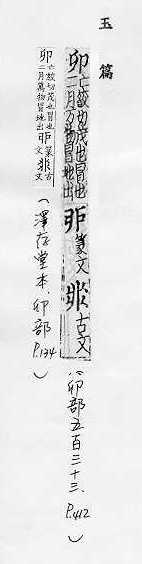 玉篇
卯亡鮫切茂也冒也二月万物冒地出戼篆文非古文
(卯部五百三十三、P.412)
卯亡鮫切茂也冒也二月萬物冒地出戼篆文非古文
(澤存堂本、卯部P.134)